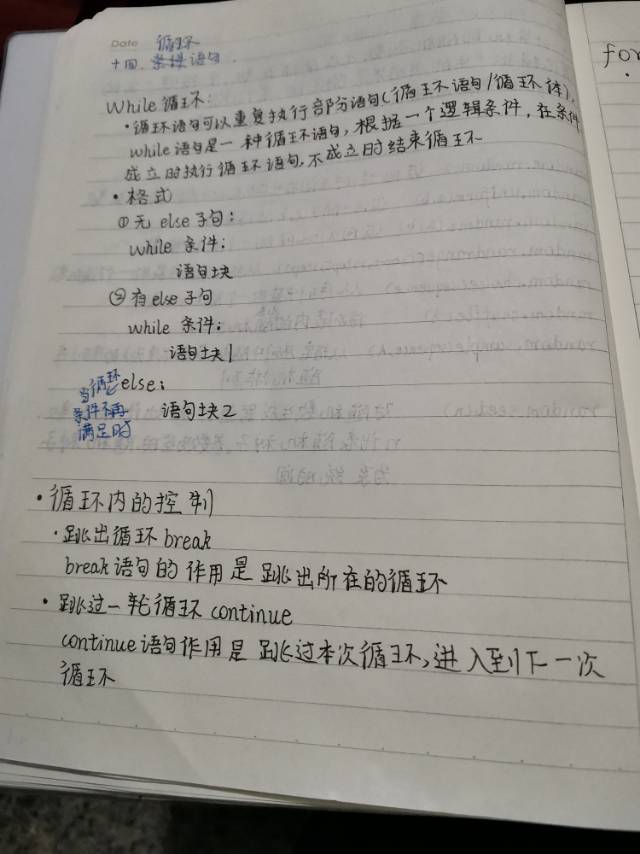 Date 循环
十四、条件语句.
While 循环:
·循环语句可以重复执行部分语句(循环语句/循环体),
while语句是一种循环语句,根据一个逻辑条件,在条件
成立时执行循环语句,不成立时结束循环
·格式
①无 else 子句:
while 条件:
语句块
②有 else 子句
while 条件:
语句块1
当循环 else:
条件不再 语句块2
满足时
·循环内的控制
·跳出循环 break
break 语句的作用是跳出所在的循环
·跳过一轮循环 continue
continue 语句作用是跳过本次循环,进入到下一次
循环
for